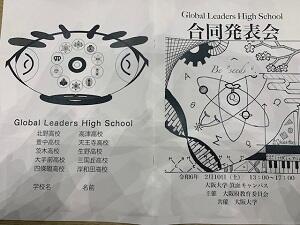 Global Leaders High School
北野高校 高津高校
豊中高校 天王寺高校
茨木高校 生野高校
大手前高校 三国丘高校
四條畷高校 岸和田高校
学校名: 名前
Global Leaders High School
合同発表会
Be "seeds"
令和6年 2月10日(土) 13:00~17:00
大阪大学 箕面キャンパス
主催 大阪府教育委員会
共催 大阪大学